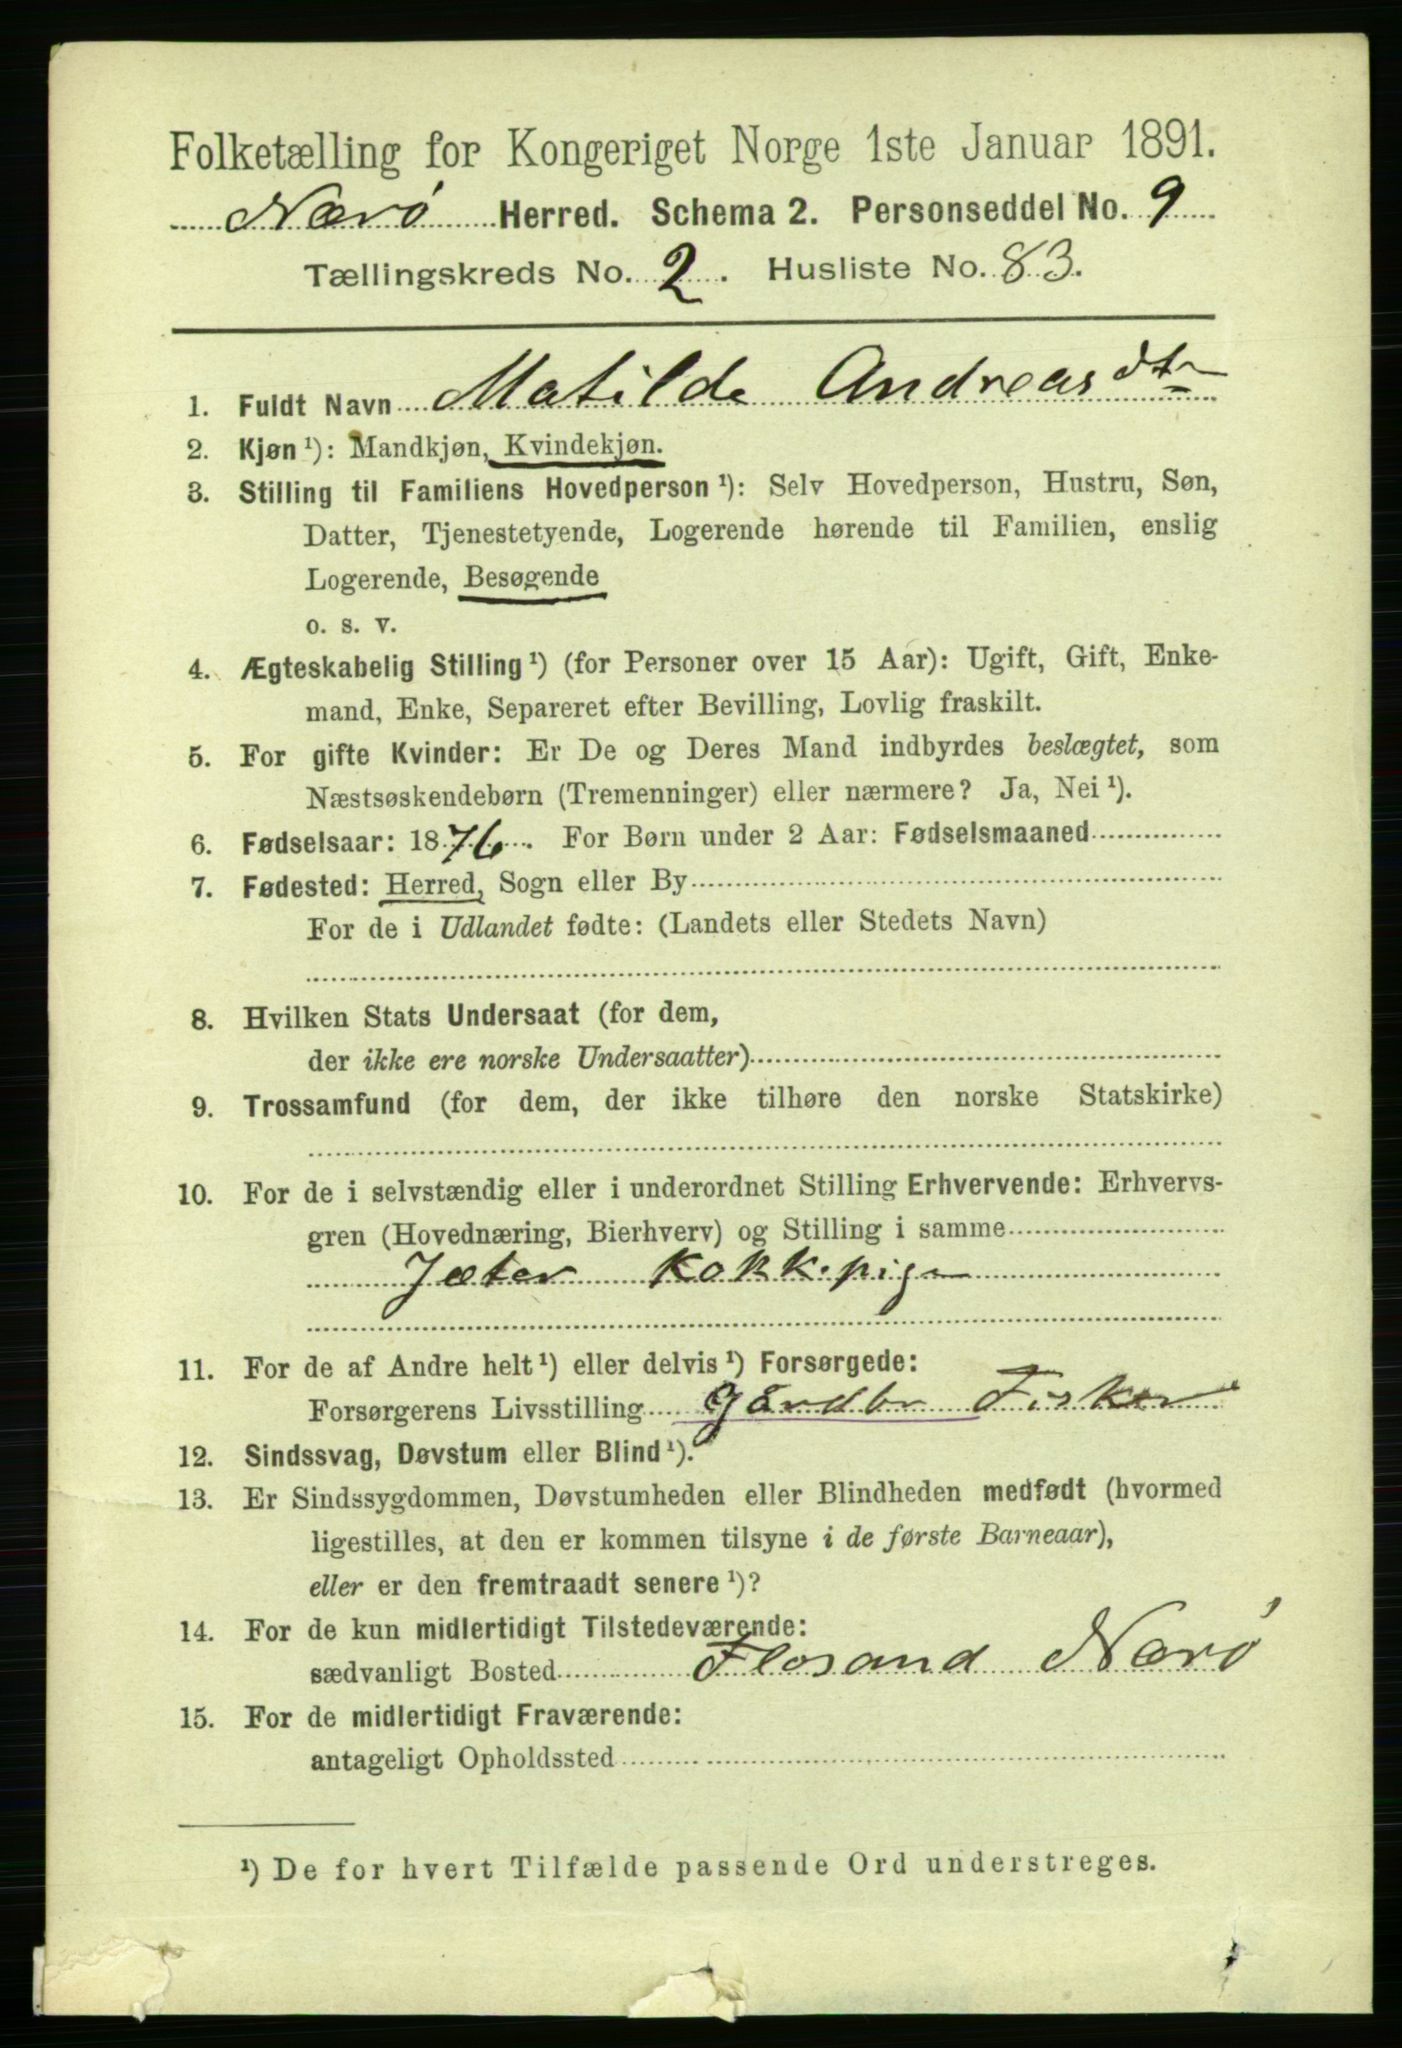 Folketælling for Kongeriget Norge 1ste Januar 1891.
Nærø Herred. Schema 2. Personseddel No. 9
Tællingskreds No. 2. Husliste No. 83.
1. Fuldt Navn Matilde Andreasdtr
2. Kjøn¹): Mandkjøn, Kvindekjøn.
3. Stilling til Familiens Hovedperson¹): Selv Hovedperson, Hustru, Søn,
Datter, Tjenestetyende, Logerende hørende til Familien, enslig
Logerende, Besøgende
o. s. v.
4. Ægteskabelig Stilling¹) (for Personer over 15 Aar): Ugift, Gift, Enke-
mand, Enke, Separeret efter Bevilling, Lovlig fraskilt.
5. For gifte Kvinder: Er De og Deres Mand indbyrdes beslægtet, som
Næstsøskendebørn (Tremenninger) eller nærmere? Ja, Nei¹).
6. Fødselsaar: 1876. For Børn under 2 Aar: Fødselsmaaned
7. Fødested: Herred, Sogn eller By
For de i Udlandet fødte: (Landets eller Stedets Navn)
8. Hvilken Stats Undersaat (for dem,
der ikke ere norske Undersaatter)
9. Trossamfund (for dem, der ikke tilhøre den norske Statskirke)
10. For de i selvstændig eller i underordnet Stilling Erhvervende: Erhvervs-
gren (Hovednæring, Bierhverv) og Stilling i samme
Jæter Kokkepige
11. For de af Andre helt¹) eller delvis¹) Forsørgede:
Forsørgerens Livsstilling Gårdbr Fisker
12. Sindssvag, Døvstum eller Blind¹).
13. Er Sindssygdommen, Døvstumheden eller Blindheden medfødt (hvormed
ligestilles, at den er kommen tilsyne i de første Barneaar),
eller er den fremtraadt senere¹)?
14. For de kun midlertidigt Tilstedeværende:
sædvanligt Bosted Flosand Nærø
15. For de midlertidigt Fraværende:
antageligt Opholdssted
¹) De for hvert Tilfælde passende Ord understreges.